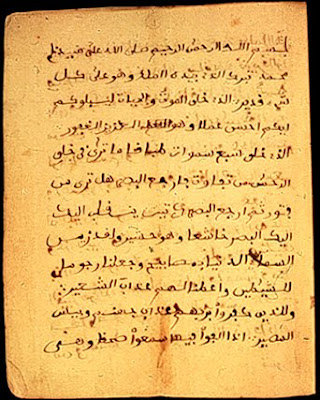 بسم الله الرحمن الرحيم صلى الله على سيدنا
محمد تبرك الذي بيده الملك وهو على كل
شيء قدير الذي خلق الموت والحياة ليبلوكم
ايكم احسن عملا وهو العزيز الغفور
الذي خلق سبع سموات طباقا ما ترى في خلق
الرحمن من تفاوت فارجع البصر هل ترى من
فتور ثم ارجع البصر ينقلب اليك
اليك البصر خاسئا وهو حسير ولقد زينا
السماء بمصابيح وجعلنا رجوما
للشيطين واعتدنا لهم عذاب السعير
وللذين كفروا بربهم عذاب جهنم وبيس
المصير اذا القوا فيها سمعوا وهي